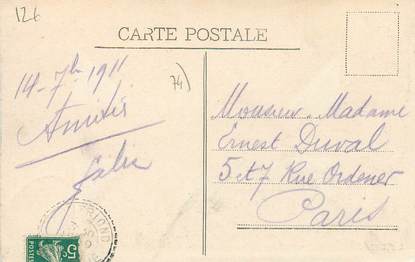 126
CARTE POSTALE
14-7bre 1911
Amitiés
74)
Monsieur. Madame
Ernest Duval
5 et 7 Rue Ordener
Paris
5c
POSTES